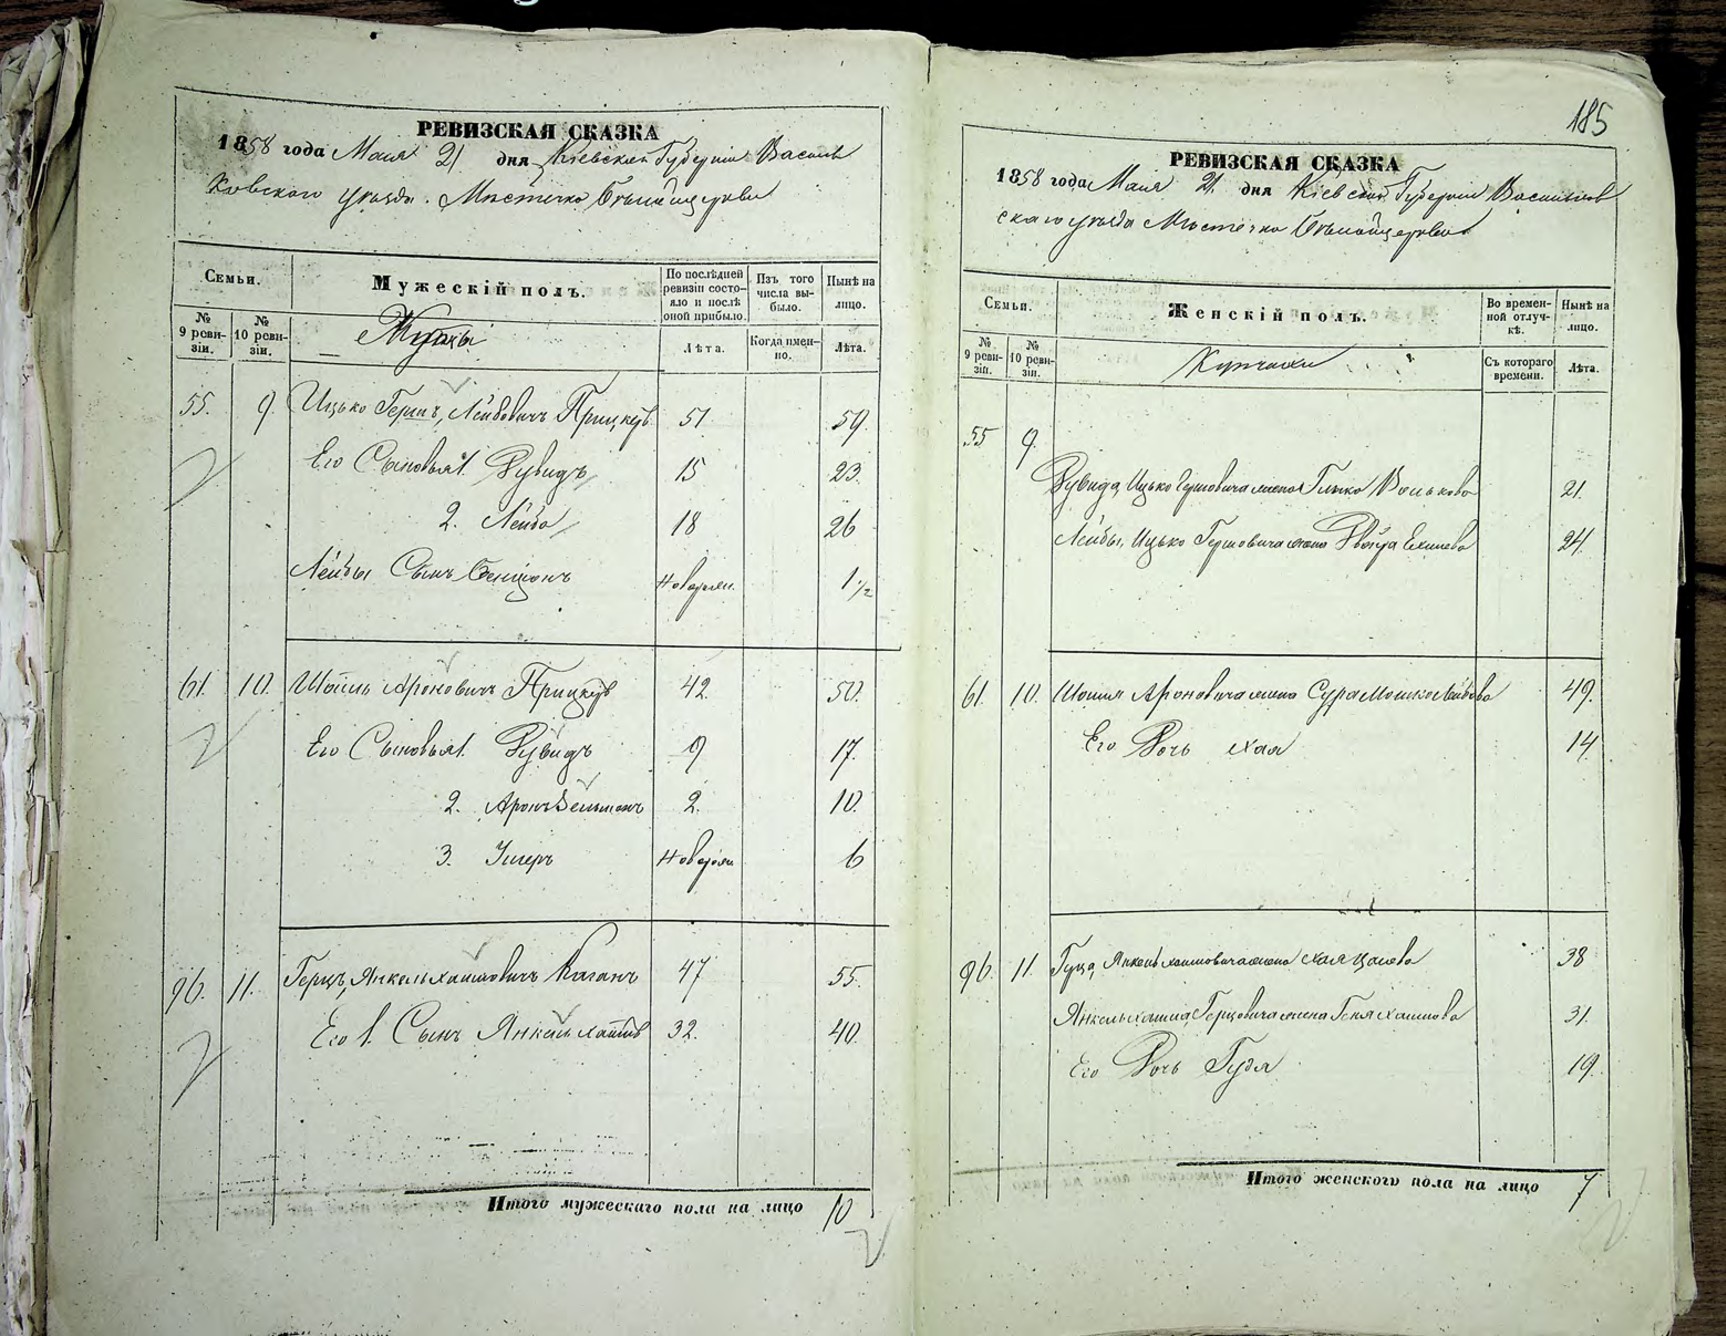 185
РЕВИЗСКАЯ СКАЗКА
1858 года Маия 21 дня Кіевской Губерніи Василь
ковского уѣзда. Мѣстечко Бѣлойцеркви
Семьи.
Мужескій полъ.
По послѣдней ревизіи состояло и послѣ оной прибыло.
Изъ того числа выбыло.
Нынѣ на лицо.
№ 9 ревизіи.
№ 10 ревизіи.
Лѣта.
Когда именно.
Лѣта.
55. 9. Ицько Герш, Лейбовичъ Прицкеръ 51 59.
Его Сыновья 1. Рувидъ 15 23.
2. Лейба 18 26
Лейбы Сынъ Бенціонъ Новорожд. 1 1/2
61. 10. Шоиль Ароновичъ Прицкеръ 42. 50.
Его Сыновья 1. Рувидъ 9 17.
2. Аронъ Зельманъ 2. 10.
3. Ушеръ Новорожд 6
96. 11. Герцъ, Янкельхаимовичъ Каганъ 47 55.
Его 1. Сынъ Янкельхаимъ 32. 40.
Итого мужескаго пола на лицо 10
РЕВИЗСКАЯ СКАЗКА
1858 года Маия 21. дня Кіевской Губерніи Васильков
скаго уѣзда Мѣстечка Бѣлойцеркви
Семьи.
Женскій полъ.
Во временной отлучкѣ.
Нынѣ на лицо.
№ 9 ревизіи.
№ 10 ревизіи.
Купчихи
Съ котораго времени.
Лѣта.
55 9.
Рувида, Ицько Гершовича жена Волькова 21.
Лейбы, Ицько Гершовича жена Двойра 24.
61. 10. Шоиля Ароновича жена Сура Мошко Лейбова 49.
Его Дочь Хая 14.
96. 11. Герца, Янкель хаимовича жена Хая 38
Янкельхаима, Герцовича жена Геня Хаимова 31.
Его Дочь Гудя 19.
Итого женскаго пола на лицо 7